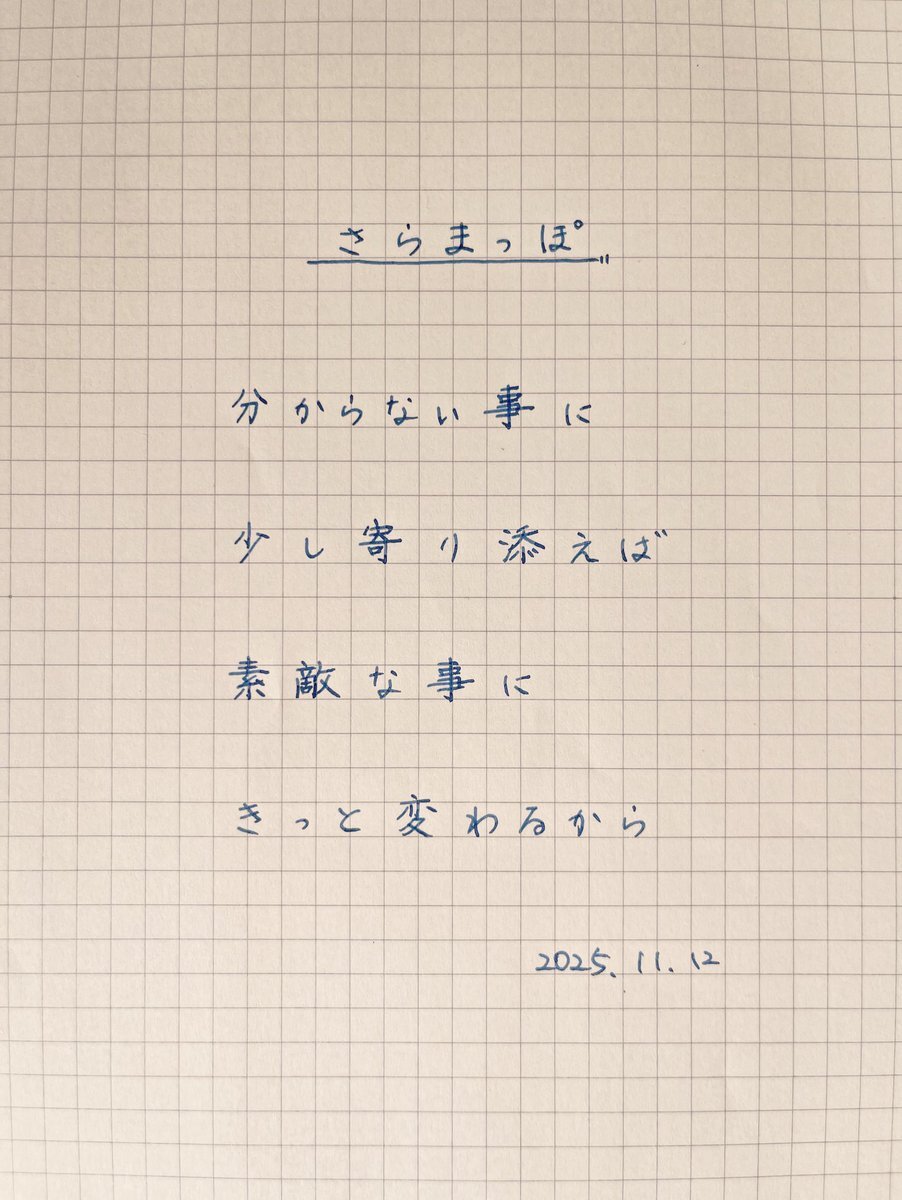 さらまっぽ
分からない事に
少し寄り添えば
素敵な事に
きっと変わるから
2025.11.12